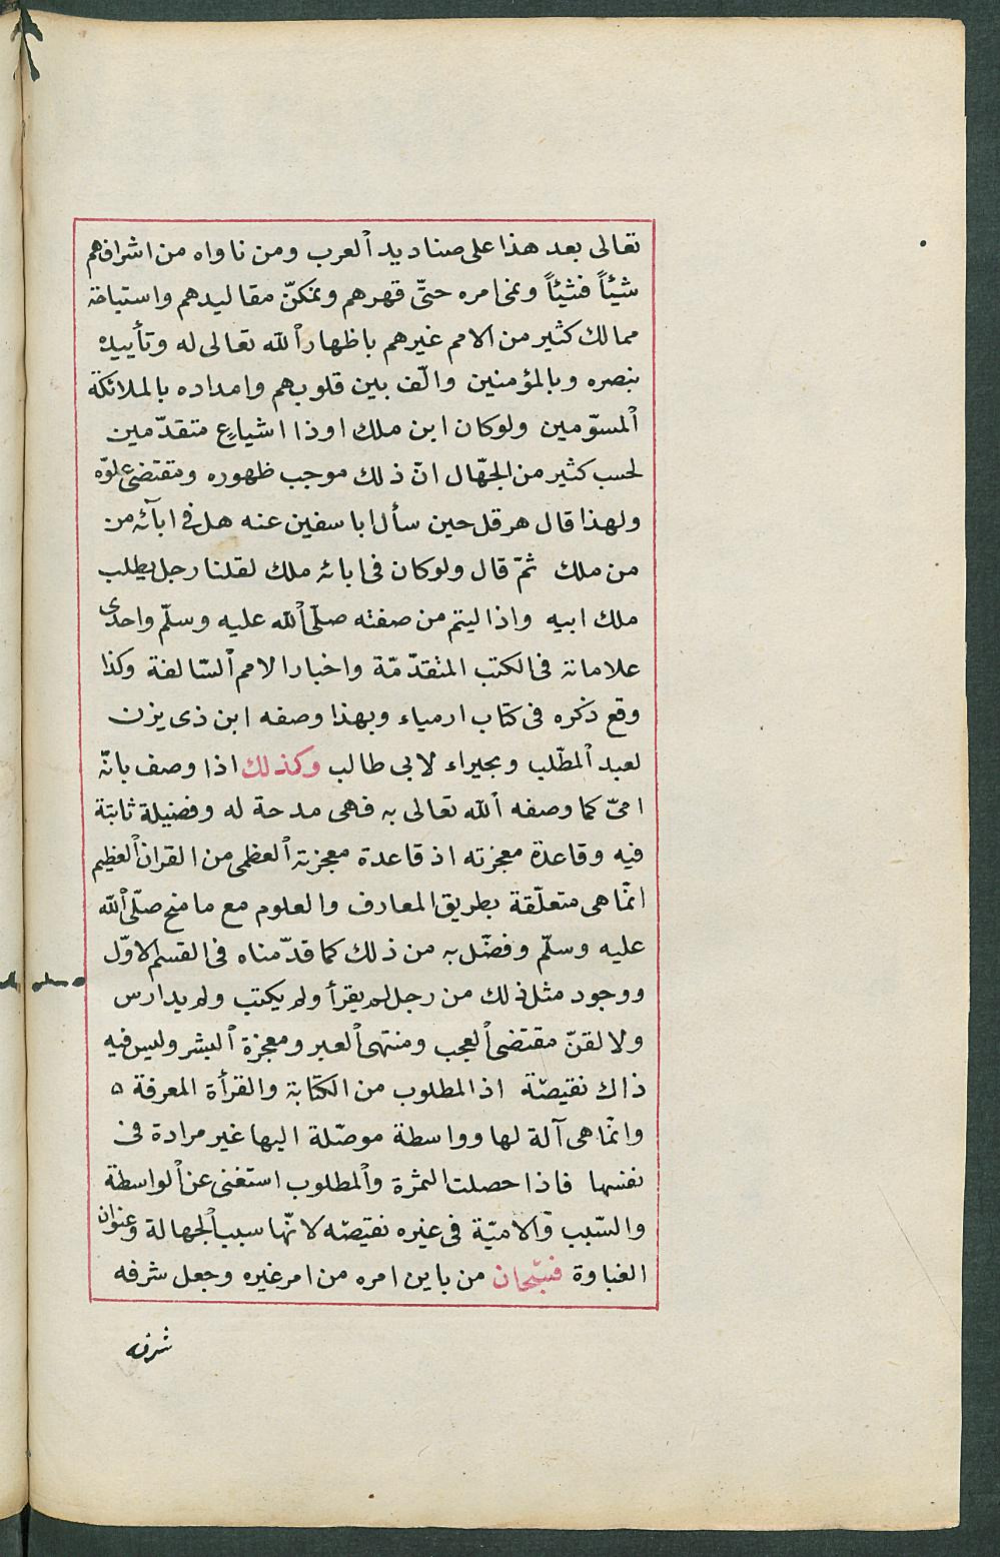 تعالى بعد هذا على صناديد العرب ومن ناواه من اشرافهم
شيئاً فشيئاً ونمى امره حتّى قهرهم وتمكنّ مقاليدهم واستباحة
ممالك كثير من الامم غيرهم باظهار الله تعالى له وتأييده
بنصره وبالمؤمنين والّف بين قلوبهم وامداده بالملائكة
المسوّمين ولو كان ابن ملك او ذا اشياعٍ متقدّمين
لحسب كثير من الجهّال انّ ذلك موجب ظهوره ومقتضى علوّه
ولهذا قال هرقل حين سأل ابا سفين عنه هل فى ابآئه من
من ملك ثمّ قال ولو كان فى ابائه ملك لقلنا رجل يطلب
ملك ابيه واذا ليتم من صفته صلّى الله عليه وسلّم واحدى
علاماته فى الكتب المتقدّمّة واخبار الامم السّالفة وكذا
وقع ذكره فى كتاب ارمياء وبهذا وصفه ابن ذى يزن
لعبد المطّلب وبحيراء لابى طالب وكذلك اذا وصف بانّه
امىّ كما وصفه الله تعالى به فهى مدحة له وفضيلة ثابتة
فيه وقاعدة معجزته اذ قاعدة معجزته العظمى من القران العظيم
انّما هى متعلّقة بطريق المعارف والعلوم مع ما منح صلّى الله
عليه وسلّم وفضّل به من ذلك كما قدّمناه فى القسم الاوّل
ووجود مثل ذلك من رجل لم يقرأ ولم يكتب ولم يدارس
ولا لقنّ مقتضى العجب ومنتهى العبر ومعجزة البشر وليس فيه
ذاك نقيصّة اذ المطلوب من الكتابة والقرأة المعرفة ه
وانّما هى آلة لها وواسطة موصّلة اليها غير مرادة فى
نفسها فاذا حصلت الثمرة والمطلوب استغنى عن الواسطة
والسّبب والاميّة فى غيره نقيصّه لانّها سبب الجهالة وعنوان
الغباوة فسبّحان من باين امره من امر غيره وجعل شرفه
شرفه